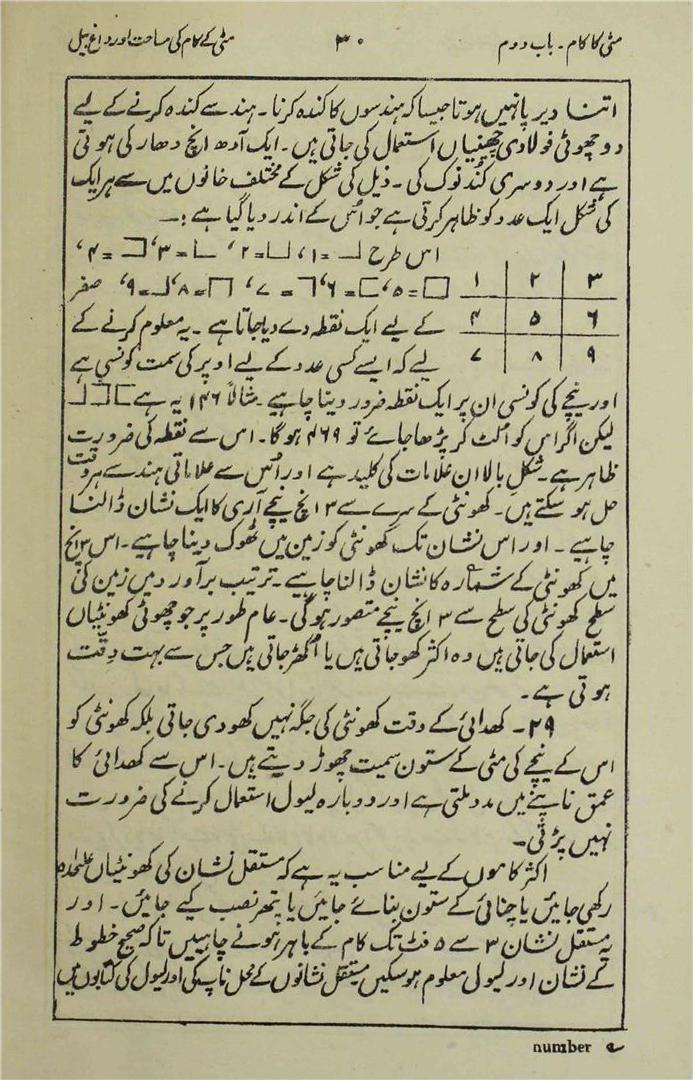 مٹی کا کام۔ باب دوم ۳۰ مٹی کے کام کی مساحت اور داغ بیل
اتنا دیرپا نہیں ہوتا جیسا کہ ہندسوں کا کندہ کرنا۔ ہندسے کندہ کرنے کے لیے
دو چھوٹی فولادی چھینیاں استعمال کی جاتی ہیں۔ ایک آدھ انچ دھار کی ہوتی
ہے اور دوسری کُند نوک کی۔ ذیل کی شکل کے مختلف خانوں میں سے ہر ایک
کی شکل ایک عدد کو ظاہر کرتی ہے جو اُس کے اندر دیا گیا ہے :۔
۱ ۲ ۳
۴ ۵ ۶
۷ ۸ ۹
اس طرح ⅃ = ۱، ⊔ = ۲، L = ۳، ⊐ = ۴،
□ = ۵، ⊏ = ۶، ┐ = ۷، ⊓ = ۸، = ۹، صفر
کے لیے ایک نقطہ دے دیا جاتا ہے۔ یہ معلوم کرنے کے
لیے کہ ایسے کسی عدد کے لیے اوپر کی سمت کونسی ہے
اور نیچے کی کونسی ان پر ایک نقطہ ضرور دینا چاہیے۔ مثلاً ۱۴۶ یہ ہے ⅃⊐⊏
لیکن اگر اس کو اُلٹ کر پڑھا جائے تو ۴۶۹ ہوگا۔ اس سے نقطہ کی ضرورت
ظاہر ہے۔ شکل بالا ان علامات کی کلید ہے اور اُس سے علاماتی ہندسے ہر وقت
حل ہو سکتے ہیں۔ کھونٹی کے سرے سے ۳ انچ نیچے آری کا ایک نشان ڈالنا
چاہیے۔ اور اس نشان تک کھونٹی کو زمین میں ٹھوک دینا چاہیے۔ اس ۳ انچ
میں کھونٹی کے شمارہ کا نشان ڈالنا چاہیے۔ ترتیب برآورد میں زمین کی
سطح کھونٹی کی سطح سے ۳ انچ نیچے متصور ہوگی۔ عام طور پر جو چھوٹی کھونٹیاں
استعمال کی جاتی ہیں وہ اکثر کھو جاتی ہیں یا اُکھڑ جاتی ہیں جس سے بہت دقّت
ہوتی ہے۔
۲۹۔ کھدائی کے وقت کھونٹی کی جگہ نہیں کھودی جاتی بلکہ کھونٹی کو
اس کے نیچے کی مٹی کے ستون سمیت چھوڑ دیتے ہیں۔ اس سے کھدائی کا
عمق ناپنے میں مدد ملتی ہے اور دوبارہ لیول استعمال کرنے کی ضرورت
نہیں پڑتی۔
اکثر کاموں کے لیے مناسب یہ ہے کہ مستقل نشان کی کھونٹیاں علیٰحدہ
رکھی جائیں یا چنائی کے ستون بنائے جائیں یا پتھر نصب کیے جائیں۔ اور
یہ مستقل نشان ۳ سے ۵ فٹ تک کام کے باہر ہونے چاہییں تاکہ صحیح خطوط
کے نشان اور لیول معلوم ہوسکیں مستقل نشانوں کے محل ناپ کی اور لیول کی کتابوں میں
number